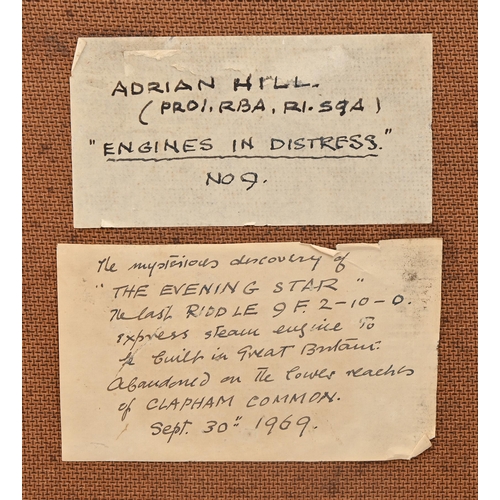 ADRIAN HILL.
(PROI, RBA, RI. SGA)
"ENGINES IN DISTRESS."
NO 9.
The mysterious discovery of
"THE EVENING STAR"
The last RIDDLE 9 F. 2-10-0.
express steam engine To
be built in Great Britain.
Abandoned on The lower reaches
of CLAPHAM COMMON.
Sept. 30" 1969.